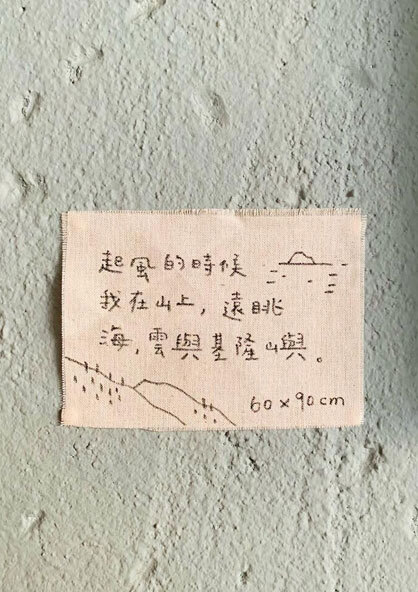 起風的時候
我在山上，遠眺
海，雲與基隆嶼。
60×90cm